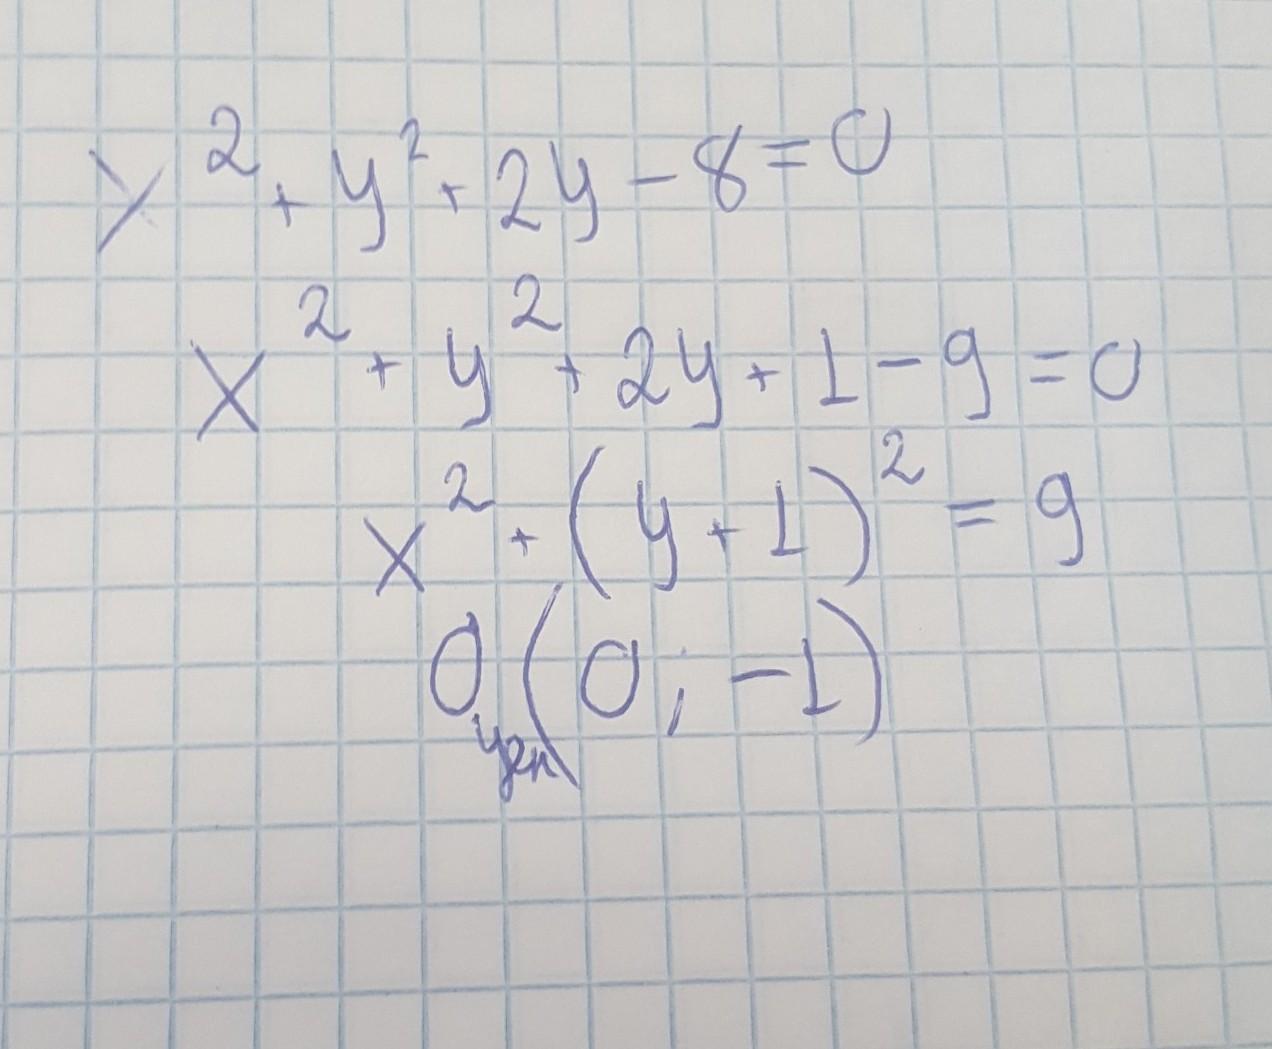 x² + y² + 2y - 8 = 0
x² + y² + 2y + 1 - 9 = 0
x² + (y + 1)² = 9
O цен (0; -1)